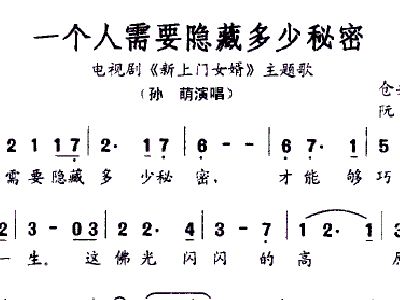 一个人需要隐藏多少秘密
电视剧《新上门女婿》主题歌
(孙 萌演唱)
仓
阮
2 1 1 7 | 2· 1 7 | 6 - - | 6 7· 1 | 5
需 要 隐藏 多 少秘 密, 才 能 够 巧
2 | 3 - 0 3 | 2· 2 | 3· 2 | 1 - |
一 生。 这 佛 光 闪 闪 的 高 原